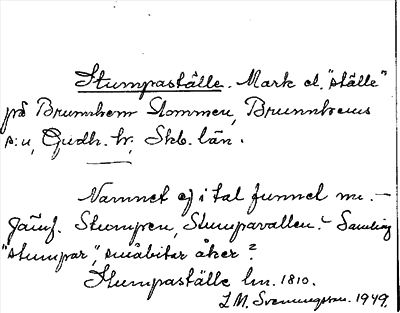 Stumpaställe. Mark el. "ställe"
på Brunnhem Stommen, Brunnhems
s:n, Gudh. hr, Skb. län.
Namnet ej i tal funnet nu. —
Jämf. Stumpen, Stumpavallen. — Samling
"stumpar", småbitar åker?
Stumpaställe lm. 1810.
I. M. Svenungsson. 1949.